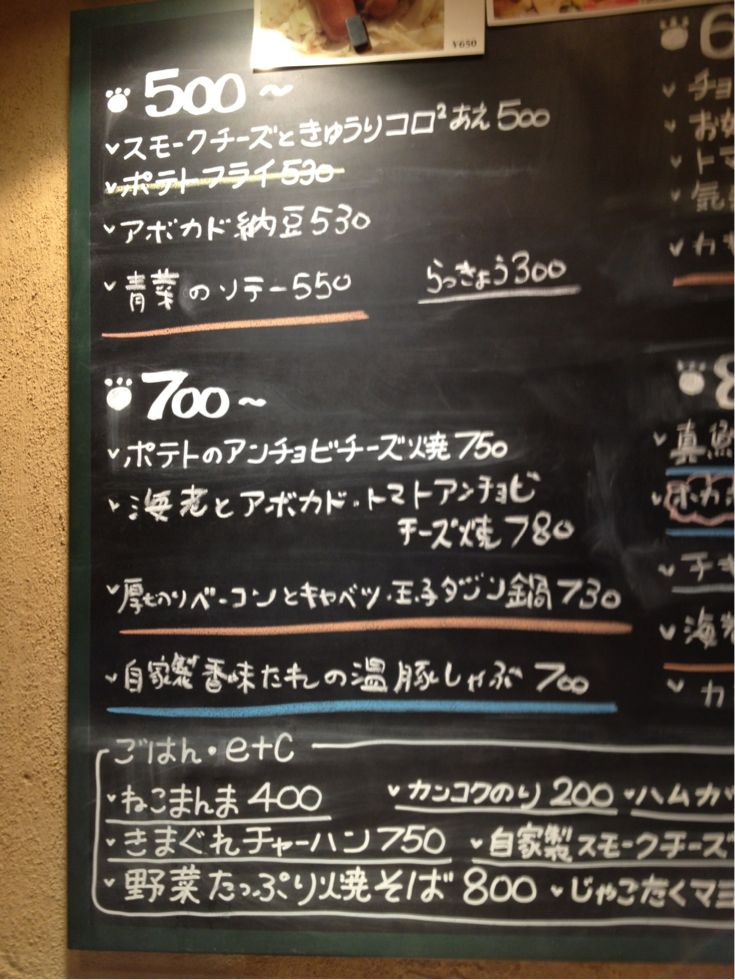 ¥650
500~
スモークチーズときゅうりコロ²あえ 500
ポテトフライ 530
アボカド納豆 530
青菜のソテー 550
らっきょう 300
700~
ポテトのアンチョビチーズ焼 750
海老とアボカド・トマトアンチョビ
チーズ焼 780
厚切りベーコンとキャベツ・玉子ダブン鍋 730
自家製香味たれの温豚しゃぶ 700
ごはん・etc
ねこまんま 400
カンコクのり 200
ハムカ
きまぐれチャーハン 750
自家製スモークチーズ
野菜たっぷり焼そば 800
じゃこたくマヨ
6
チョ
お
トマ
気
カキ
8
真
チキ
海老
カ